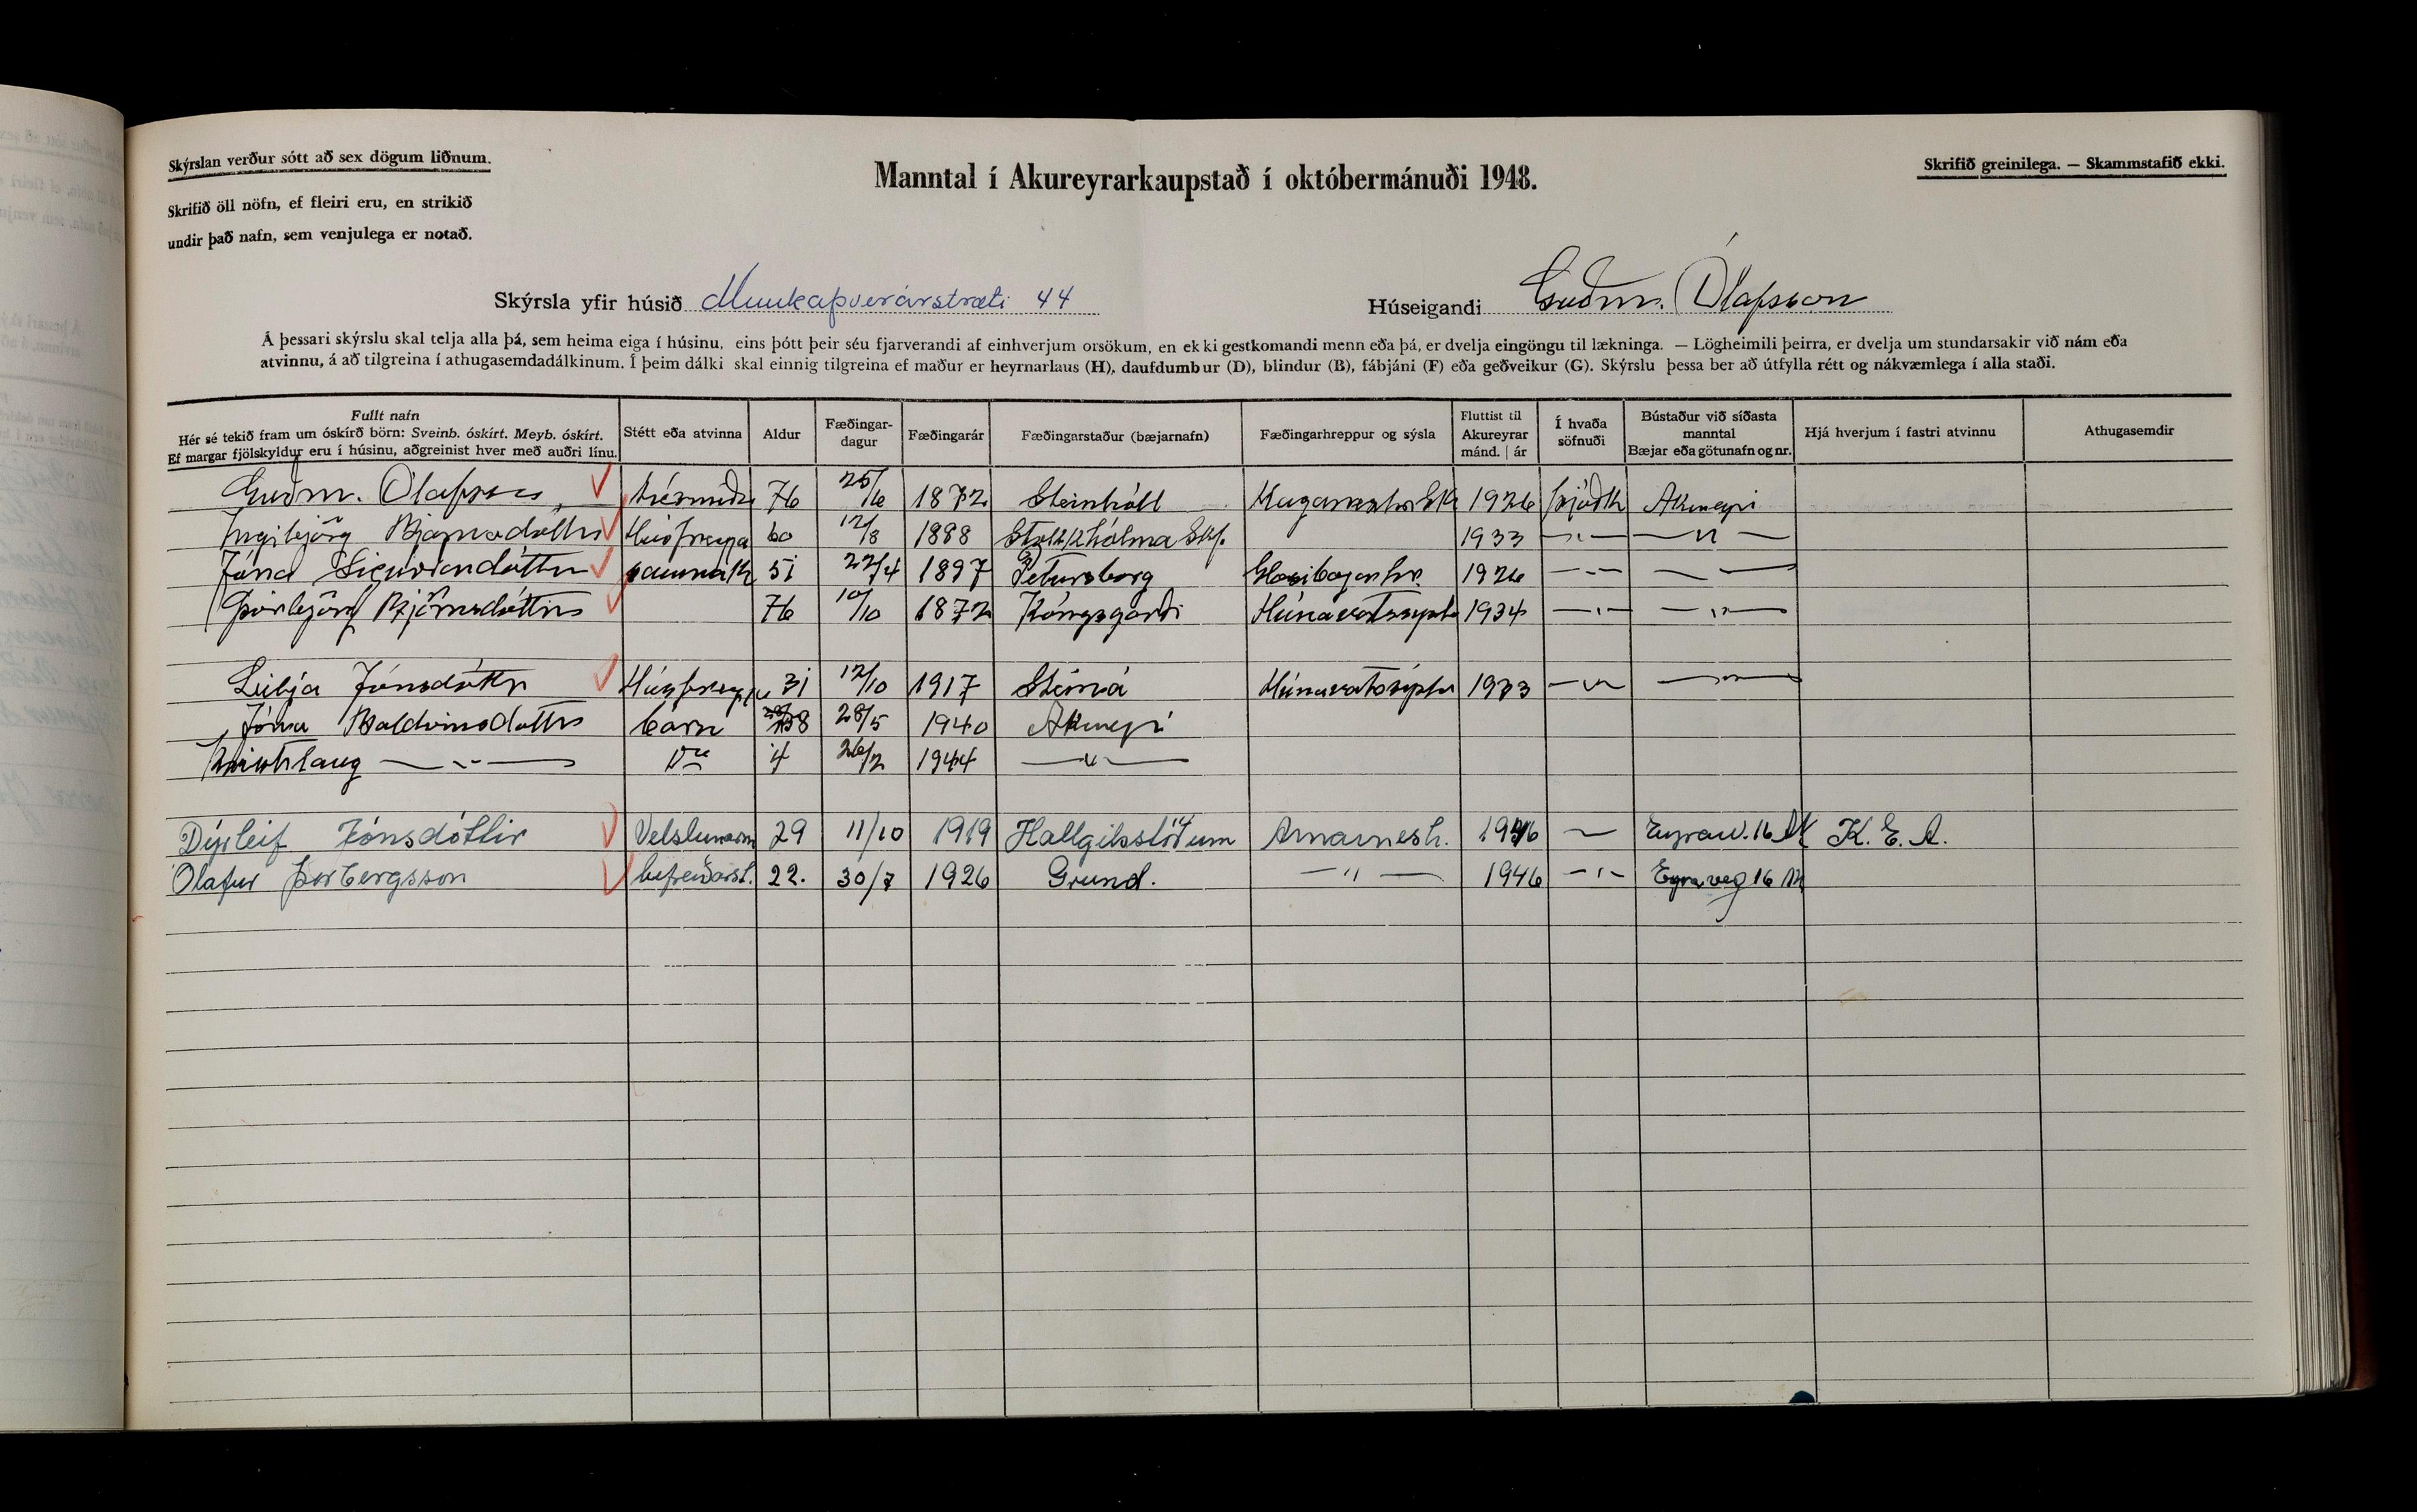 Skýrslan verður sótt að sex dögum liðnum.
Skrifið öll nöfn, ef fleiri eru, en strikið
undir það nafn, sem venjulega er notað.
Manntal í Akureyrarkaupstað í októbermánuði 1948.
Skrifið greinilega. — Skammstafið ekki.
Skýrsla yfir húsið Munkaþverárstræti 44
Húseigandi Guðm. Ólafsson
Á þessari skýrslu skal telja alla þá, sem heima eiga í húsinu, eins þótt þeir séu fjarverandi af einhverjum orsökum, en ekki gestkomandi menn eða þá, er dvelja eingöngu til lækninga. — Lögheimili þeirra, er dvelja um stundarsakir við nám eða
atvinnu, á að tilgreina í athugasemdadálkinum. Í þeim dálki skal einnig tilgreina ef maður er heyrnarlaus (H), daufdumbur (D), blindur (B), fábjáni (F) eða geðveikur (G). Skýrslu þessa ber að útfylla rétt og nákvæmlega í alla staði.
Fullt nafn
Hér sé tekið fram um óskírð börn: Sveinb. óskírt. Meyb. óskírt.
Ef margar fjölskyldur eru í húsinu, aðgreinist hver með auðri línu.
Stétt eða atvinna
Aldur
Fæðingar-
dagur
Fæðingarár
Fæðingarstaður (bæjarnafn)
Fæðingarhreppur og sýsla
Fluttist til
Akureyrar
mánd. | ár
Í hvaða
söfnuði
Bústaður við síðasta
manntal
Bæjar eða götunafn og nr.
Hjá hverjum í fastri atvinnu
Athugasemdir
Guðm. Ólafsson 76 25/6 1872 Steinhóll 1926 þjóðk Akureyri
Ingibjörg Bjarnadóttir Húsfreyja 60 12/8 1888 Stokkhólma Skf. 1933 — " — — " —
Jóna 51 22/4 1897 Petursborg Glæsibæjarhr. 1926 — " — — " —
Þorbjörg Björnsdóttir 76 10/10 1872 Kóngsgarði 1934 — " — — " —
Lilja Jónsdóttir Húsfreyja 31 12/10 1917 Steiná 1933 — " — — " —
Jóna Baldvinsdóttir barn 8 28/5 1940 Akureyri
— " — Do 4 26/2 1944 — " —
Dýrleif Jónsdóttir 29 11/10 1919 Hallgilsstöðum Arnarnesh. 1946 — Eyrarv. 16 Ak K. E. A.
Ólafur Þorbergsson bifreiðarst. 22. 30/7 1926 Grund. — " — 1946 — " — Eyraveg 16 Ak